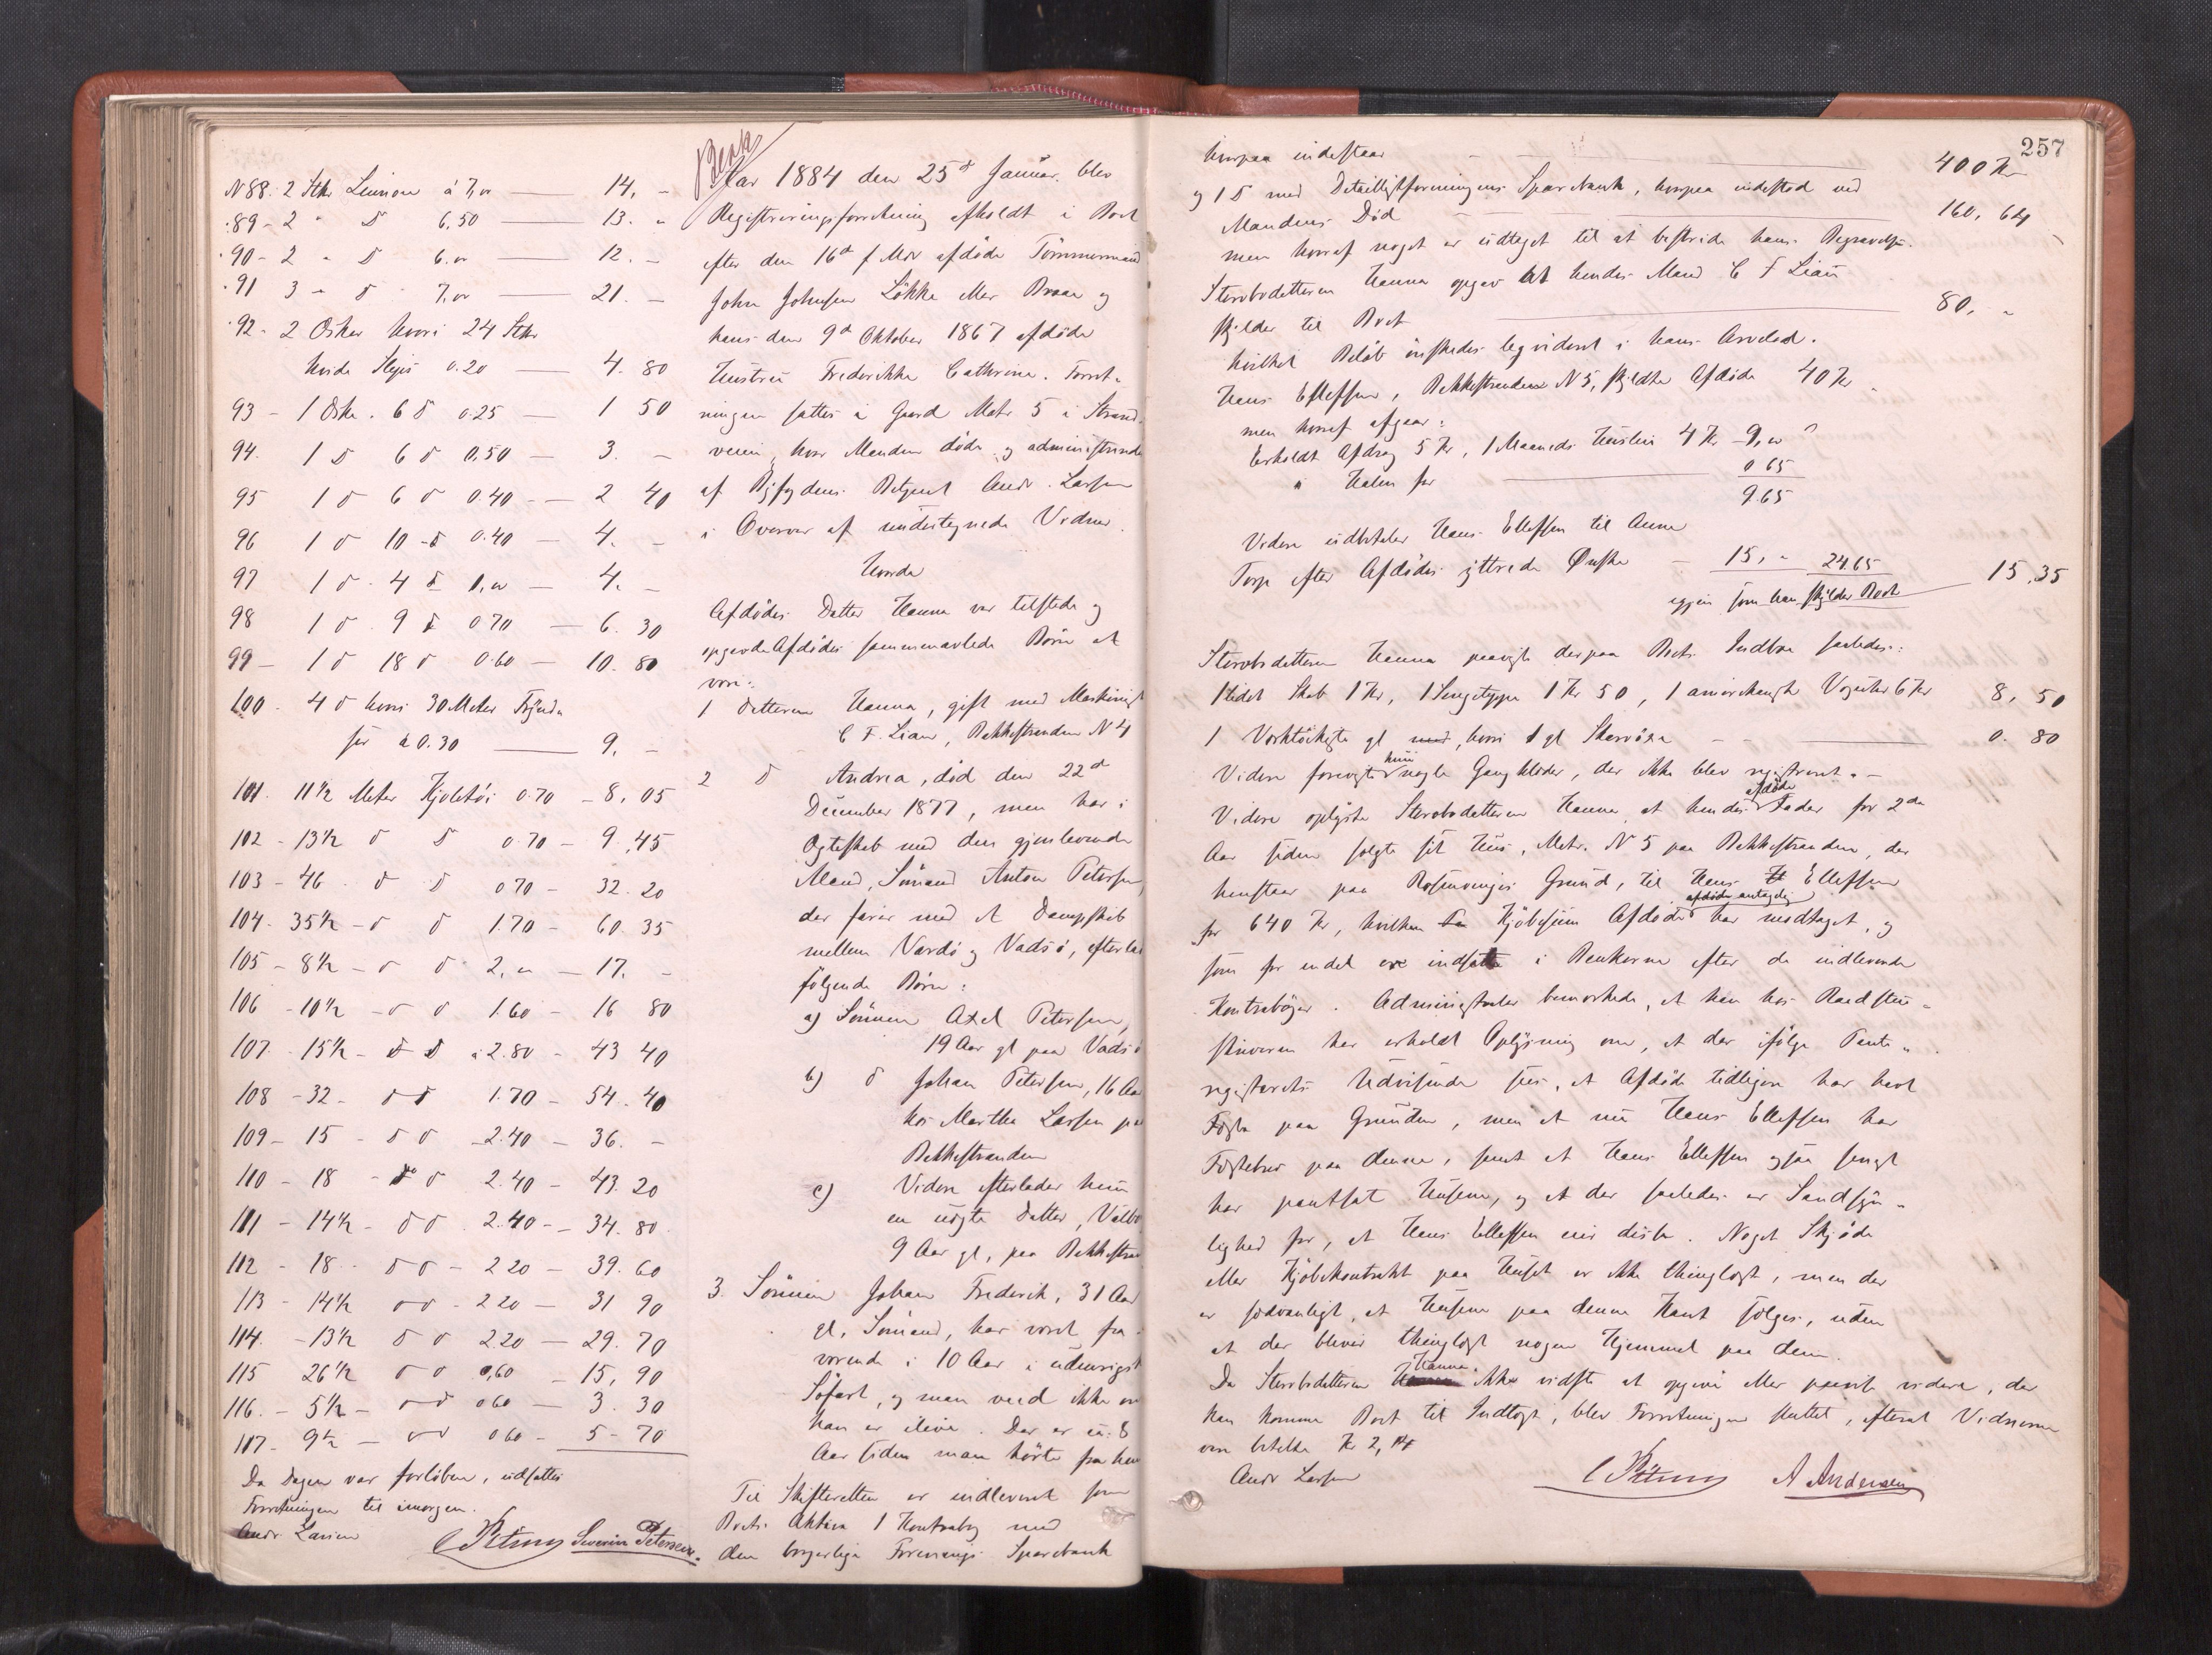 N 88. 2 Stkr Linnon á 7,00 — 14, -
89 - 2 " D 6,50 — 13. "
90 - 2 " D 6.00 — 12. -
91 3 " D 7,00 — 21. -
92 - 2 Æsker hvori 24 Stkr
hvide Slips 0.20 — 4. 80
93 - 1 Æske . 6 D 0.25 — 1 50
94. 1 D 6 D 0,50 — 3. -
95 1 D 6 D 0.40 — 2 40
96 1 D 10 - D 0.40 — 4. -
97 1 D . 4 D 1,00 — 4. -
98 1 D . 9 D 0 70 — 6. 30
99 - 1 D 18 D 0.60 — 10. 80
100 . 4 D hvori 30 Meter
á 0.30 — 9, -
101 . 11 1/2 Meter Kjoletøi 0.70 - 8, 05
102 - 13 1/2 D D 0.70 - 9.,45
103 - 46 . D D 0 70 - 32. 20
104 - 35 1/2 - D D 1.70 - 60. 35
105 - 8 1/2 - D D 2,00 - 17. -
106 - 10 1/2 - D D 1.60 - 16 80
107 . 15 1/2 - D D á 2.80 - 43 40
108 - 32 - D D 1.70 - 54. 40
109 - 15 - D D - 2.40 - 36. -
110 - 18 - D D 2.40 - 43. 20
111 - 14 1/2 - D D . 2.40 - 34. 80
112 - 18 - D D - 2 20 - 39. 60
113 - 14 1/2 D D - 2 20 - 31 90
114. - 13 1/2 D D 2.20 - 29. 70
115 26 1/2 D D 0,60 - 15, 90
116. - 5 1/2 - D D 0 60 - 3. 30
117 - 9 1/2 - D D 0 60 - 5 - 70
Da Dagen var forløben, udsattes
Forretningen til imorgen.
Andr. Larsen Severin Petersen.
Aar 1884 den 25d Januar blev
Registreringsforretning afholdt i Boet
efter den 16d f Mdr afdøde Tømmermand
John Johnsen Løkke eller Braae og
hans den 9d Oktober 1867 afdøde
Hustru Frederikke Cathrine. Forret-
ningen sattes i Gaard Matr 5 i Strand-
veien, hvor Manden døde og administreredes
af Byfogdens Betjent Andr. Larsen
i Overvær af undertegnede Vidner.
Hvorda
Afdødes Datter Hanna var tilstede og
opgav de Afdødes sammenavlede Børn at
være:
1 Datteren Hanna, gift med Maskinist
C F. Lian, Bakkestranden N 4
2 D Andrea, død den 22d
December 1877, men har i
Ægteskab med den gjenlevende
Mand, Sømand Anton Petersen,
der farer med et Dampskib
mellem Vardø og Vadsø, efterladt
følgende Børn:
a) Sønnen Axel Petersen,
19 Aar gl paa Vadsø
b) D Johan Petersen, 16 Aar
hos Martha Larsen paa
Bakkestranden
c) Videre efterlader hun
en uægte Datter,
9 Aar gl, paa
3. Sønnen Johan Frederik, 31 Aar
gl, Sømand, har været fra-
værende i 10 Aar i udenrigsk
Søfart, og man veed ikke om
han er ilive. Der er cu. 8
Aar siden man hørte fra ham
Til Skifteretten er indleveret som
Boets Aktiva 1 Kontrabog med
den borgerlige Forenings Sparebank
257
hvorpaa indestaar — 400 Kr
og 1 D med Detaillistforeningens Sparebank, hvorpaa indestod ved
Mandens Død — 160, 64
men hvoraf noget er udtaget til at bestride hans Begravelse.
Stervbodatteren Hanna opgav at hendes Mand C F Lian
skylder til Boet — 80, "
hvilket Beløb ønskedes ligvideret i hans Arvelod.
Hans Ellefsen, Bakkestranden N 5, skyldte Afdøde 40 Kr
men hvoraf afgaar:
Erholdt Afdrag 5 Kr, 1 Maaneds Husleie 4 Kr - 9,00
" Halm for — 0 65
9.65
Videre udbetaler Hans Ellefsen til Anna
Torp efter Afdødes yttrede Ønske - 15, " 24.65
igjen som han skylder Boet — 15,35
Stervbodatteren Hanna paaviste derpaa Boets Indboe saaledes:
1 Skab 1 Kr, 1 Sengetæppe 1 Kr 50, 1 amerikansk Væguhr 6 Kr 8, 50
1 Værktøikiste gl, hvori 1 gl Skarøxe — 0. 80
Videre foreviste hun nogle Gangklæder, der ikke blev registreret. -
Videre oplyste Stervbodatteren Hanna, at hendes afdøde Fader for 2de
Aar siden solgte sit Huus, Matr. N 5 paa Bakkestranden, der
henstaar paa Rosenvinges Grund, til Hans Ellefsen
for 640 Kr, hvilken Kjøbesum Afdøde afdøde antagelig har modtaget, og
som for endel ere indsatte i Bankerne efter de indleverede
Kontrabøger. Administrator bemærkede, at han hos Raadstue-
skriveren har erholdt Oplysning om, at der ifølge Pante-
registerets Udvisende sees, at Afdøde tidligere har havt
Fæste paa Grunden, men at nu Hans Ellefsen har
Fæstebrev paa denne, samt at Hans Ellefsen ogsaa
har pantsat Husene, og at der saaledes er Sandsyn-
lighed for, at Hans Ellefsen eier disse. Noget Skjøde
eller Kjøbekontrakt paa Huset er ikke thinglæst, men der
er sædvanligt, at Husene paa denne Kant sælges, uden
at der bliver thinglæst nogen Hjemmel paa dem.
Da Stervbodatteren Hanna ikke vidste at opgive eller paavise videre, der
kan komme Boet til Indtægt, blev Forretningen sluttet, efterat Vidnerne
vare betalte Kr 2,
Andr Larsen A Andersen